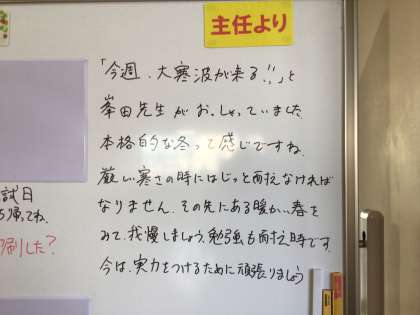 主任より
「今週、大寒波が来る!!」と
峯田先生がおっしゃっていました
本格的な冬って感じですね。
厳しい寒さの時にはじっと耐えなければ
なりません。その先にある暖かい春を
みて、我慢しましょう。勉強も耐え時です。
今は、実力をつけるために頑張りましょう
試日
ち帰ってね、
刷した?